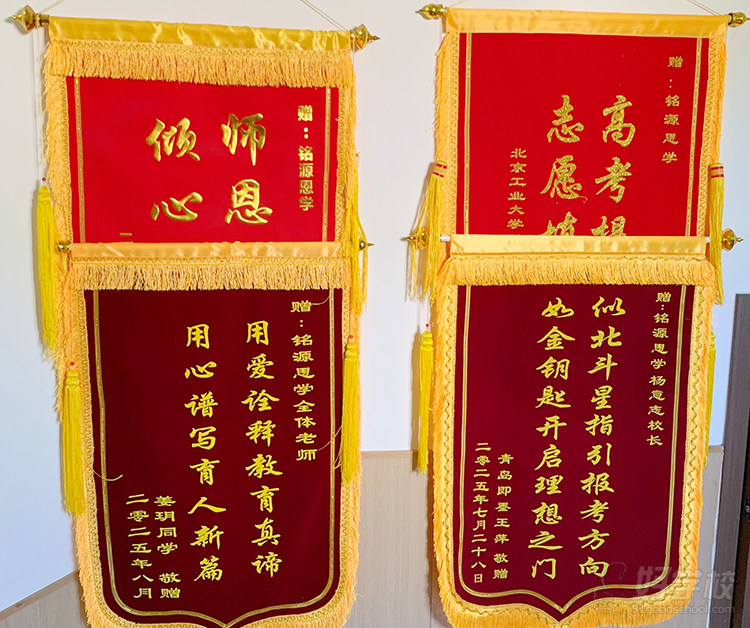 赠：铭源恩学
师恩
倾心
赠：铭源恩学全体老师
用爱诠释教育真谛
用心谱写育人新篇
姜玥同学 敬赠
二零二五年八月
赠：铭源恩学
高考
志愿
北京工业大学
赠：铭源恩学杨意志校长
似北斗星指引报考方向
如金钥匙开启理想之门
青岛即墨王萍 敬赠
二零二五年七月二十八日
好学校
91goodschool.com